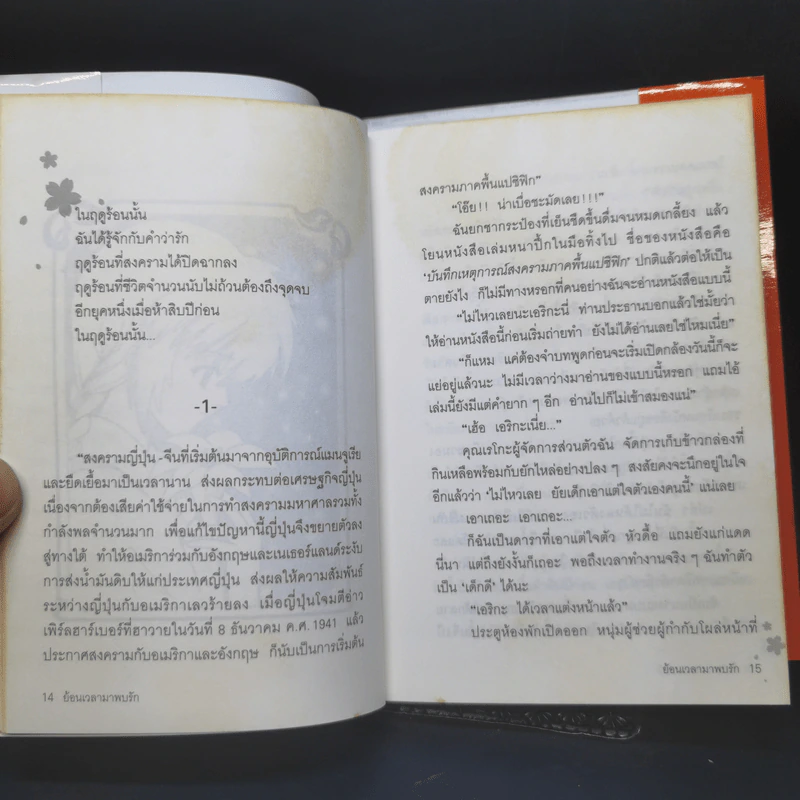 ในฤดูร้อนนั้น
ฉันได้รู้จักกับคำว่ารัก
ฤดูร้อนที่สงครามได้ปิดฉากลง
ฤดูร้อนที่ชีวิตจำนวนนับไม่ถ้วนต้องถึงจุดจบ
อีกยุคหนึ่งเมื่อห้าสิบปีก่อน
ในฤดูร้อนนั้น...
-1-
“สงครามญี่ปุ่น-จีนที่เริ่มต้นมาจากอุบัติการณ์แมนจูเรีย
และยืดเยื้อมาเป็นเวลานาน ส่งผลกระทบต่อเศรษฐกิจญี่ปุ่น
เนื่องจากต้องเสียค่าใช้จ่ายในการทำสงครามมหาศาลรวมทั้ง
กำลังพลจำนวนมาก เพื่อแก้ไขปัญหานี้ญี่ปุ่นจึงขยายตัวลง
สู่ทางใต้ ทำให้อเมริการ่วมกับอังกฤษและเนเธอร์แลนด์ระงับ
การส่งน้ำมันดิบให้แก่ประเทศญี่ปุ่น ส่งผลให้ความสัมพันธ์
ระหว่างญี่ปุ่นกับอเมริกาเลวร้ายลง เมื่อญี่ปุ่นโจมตีอ่าว
เพิร์ลฮาร์เบอร์ที่ฮาวายในวันที่ 8 ธันวาคม ค.ศ. 1941 แล้ว
ประกาศสงครามกับอเมริกาและอังกฤษ ก็นับเป็นการเริ่มต้น
14 ย้อนเวลามาพบรัก
สงครามภาคพื้นแปซิฟิก”
“โอ๊ย!! น่าเบื่อชะมัดเลย!!!”
ฉันยกชากระป๋องที่เย็นชืดขึ้นดื่มจนหมดเกลี้ยง แล้ว
โยนหนังสือเล่มหนาปึ้กในมือทิ้งไป ชื่อของหนังสือคือ
‘บันทึกเหตุการณ์สงครามภาคพื้นแปซิฟิก’ ปกติแล้วต่อให้เป็น
ตายยังไง ก็ไม่มีทางหรอกที่คนอย่างฉันจะอ่านหนังสือแบบนี้
“ไม่ไหวเลยนะเอริกะนี่ ท่านประธานบอกแล้วใช่มั้ยว่า
ให้อ่านหนังสือนี้ก่อนเริ่มถ่ายทำ ยังไม่ได้อ่านเลยใช่ไหมเนี่ย”
“ก็แหม แค่ต้องจำบทพูดก่อนจะเริ่มเปิดกล้องวันนี้ก็จะ
แย่อยู่แล้วนะ ไม่มีเวลาว่างมาอ่านของแบบนี้หรอก แถมไอ้
เล่มนี้ยังมีแต่คำยาก ๆ อีก อ่านไปก็ไม่เข้าสมองแน่”
“เฮ้อ เอริกะเนี่ย...”
คุณเรโกะผู้จัดการส่วนตัวฉัน จัดการเก็บข้าวกล่องที่
กินเหลือพร้อมกับยักไหล่อย่างปลง ๆ สงสัยคงจะนึกอยู่ในใจ
อีกแล้วว่า ‘ไม่ไหวเลย ยัยเด็กเอาแต่ใจตัวเองคนนี้’ แน่เลย
เอาเถอะ เอาเถอะ...
ก็ฉันเป็นดาราที่เอาแต่ใจตัว หัวดื้อ แถมยังแก่แดด
นี่นา แต่ถึงยังงั้นก็เถอะ พอถึงเวลาทำงานจริง ๆ ฉันทำตัว
เป็น ‘เด็กดี’ ได้นะ
“เอริกะ ได้เวลาแต่งหน้าแล้ว”
ประตูห้องพักเปิดออก หนุ่มผู้ช่วยผู้กำกับโผล่หน้าที่
ย้อนเวลามาพบรัก 15